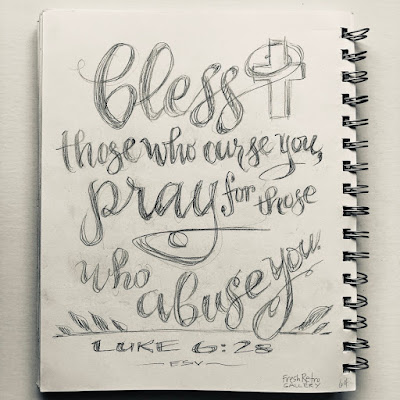 bless
those who curse you,
pray for those
who abuse you.
LUKE 6:28
ESV
FreshRetro
GALLERY